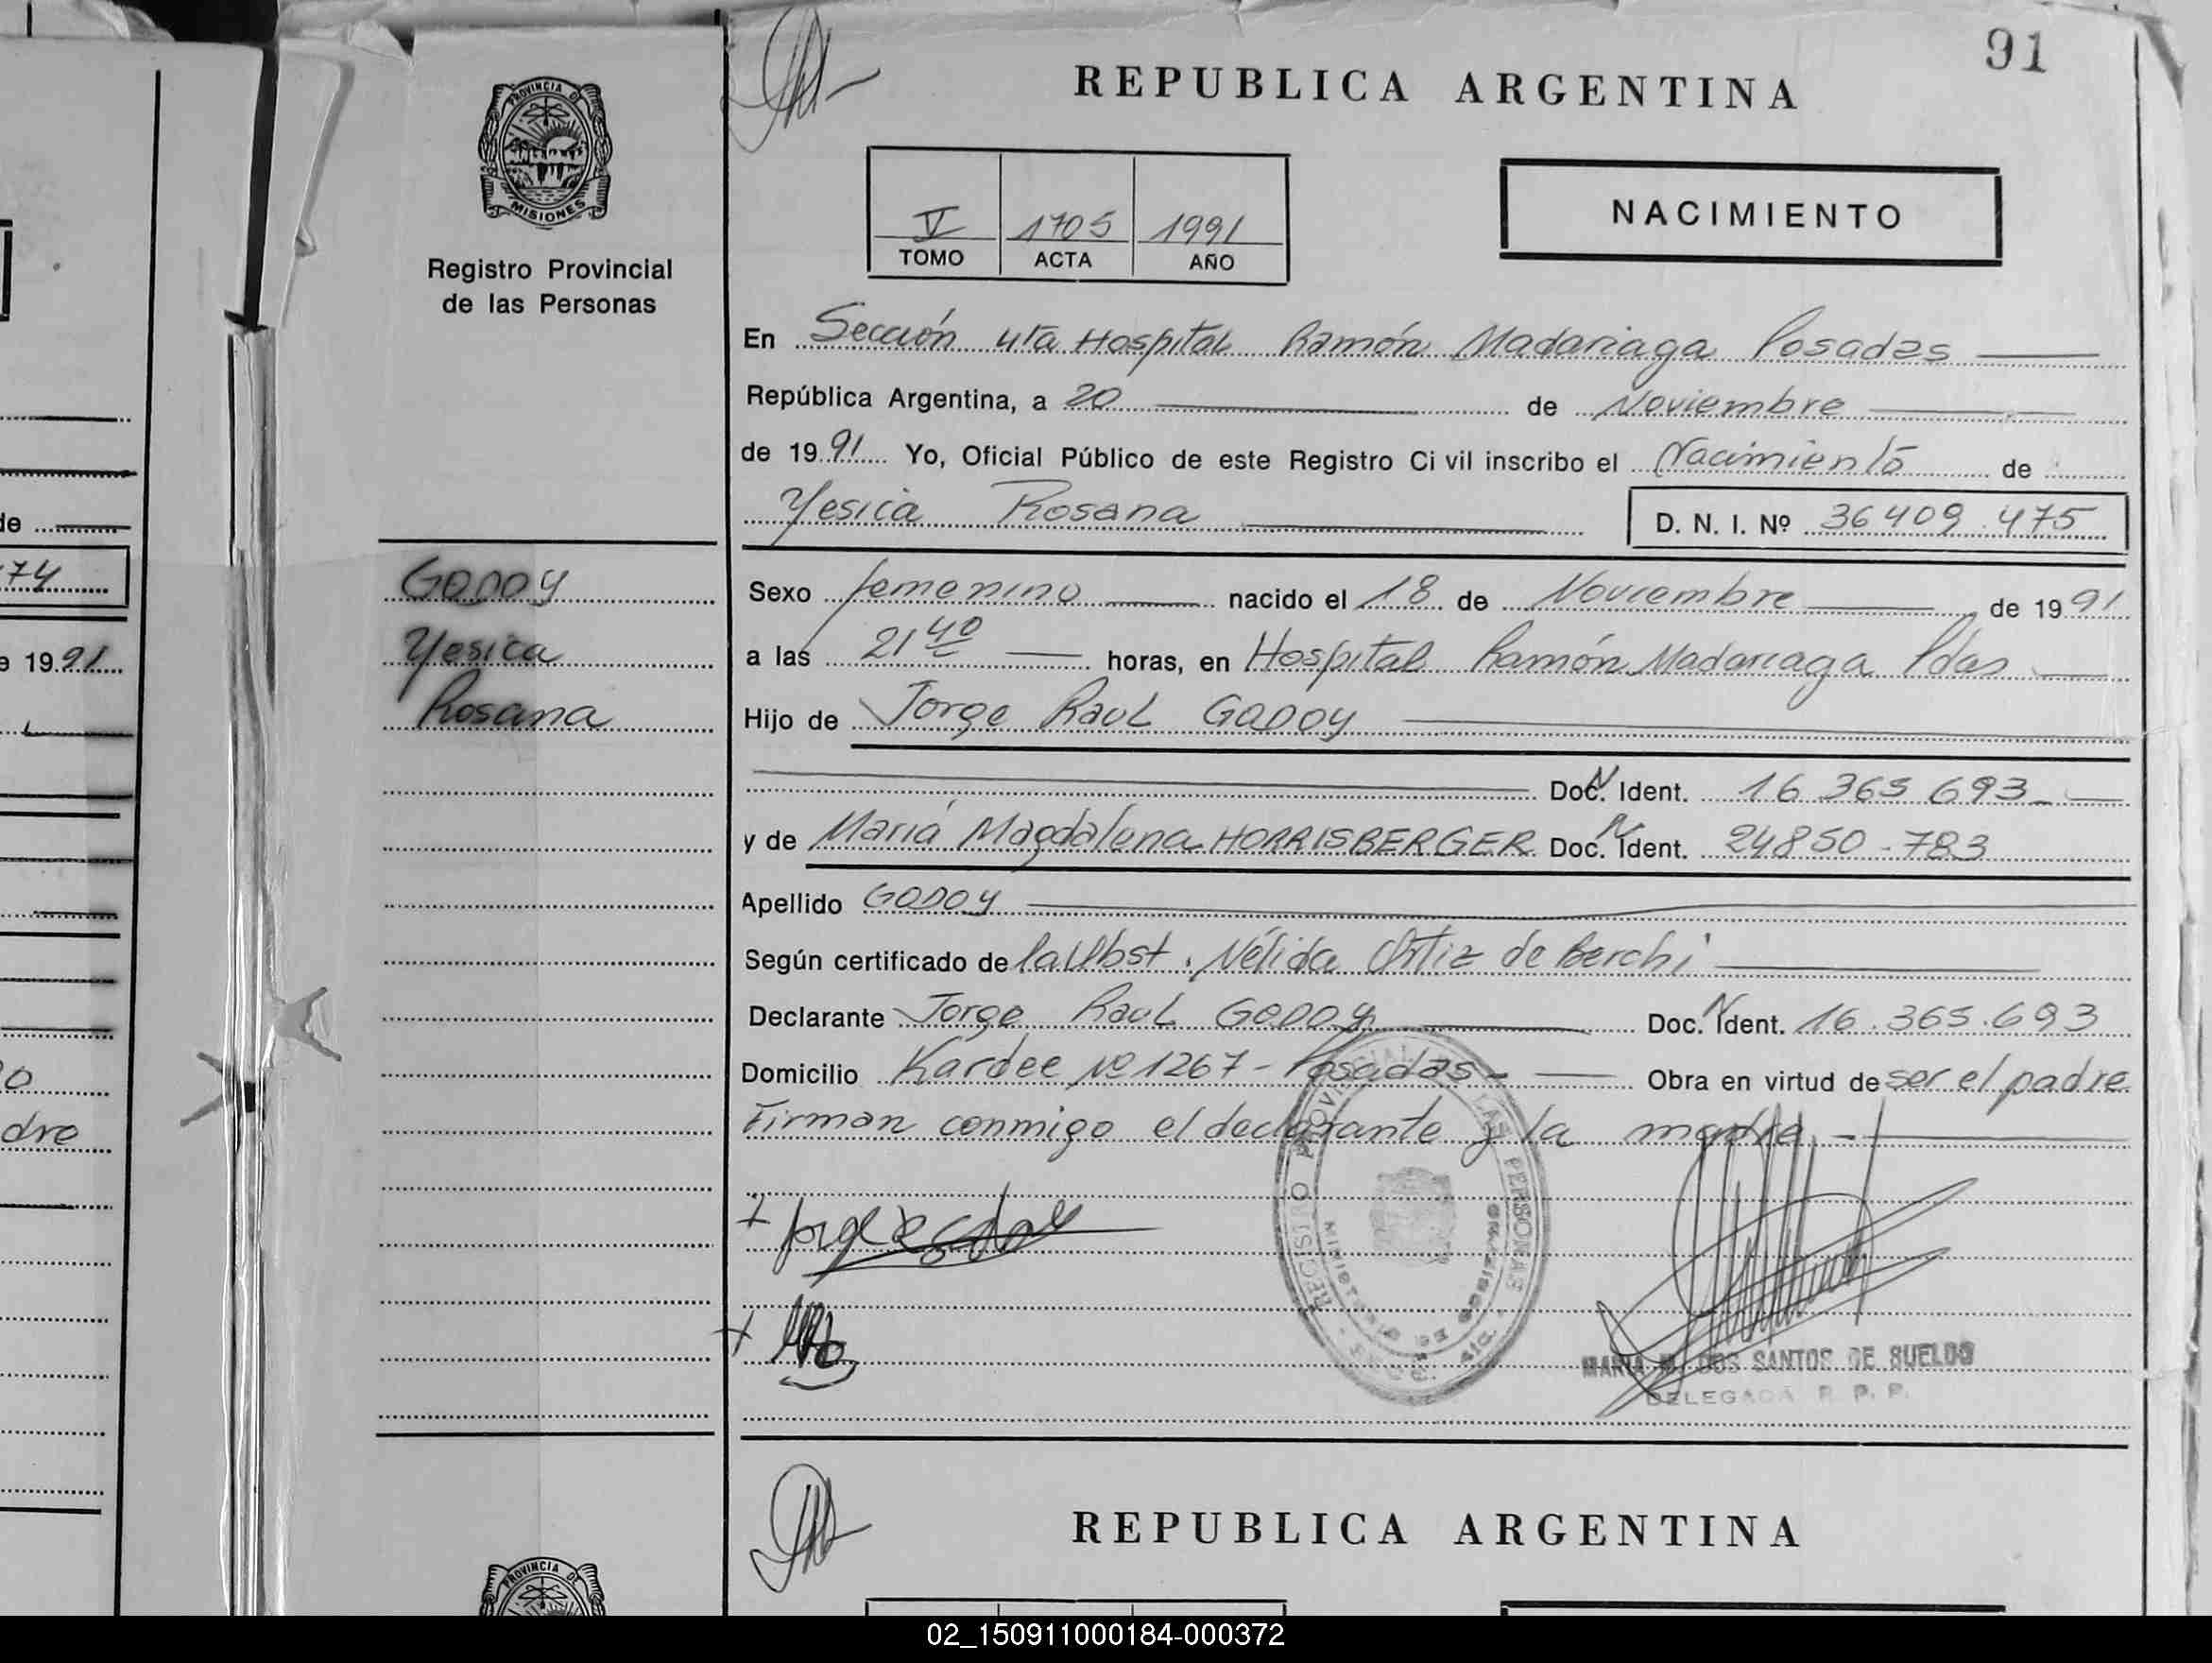 91
REPUBLICA ARGENTINA
PROVINCIA DE
MISIONES
Registro Provincial
de las Personas
NACIMIENTO
V 1705 1991
TOMO ACTA AÑO
En Sección 4ta Hospital Ramón Madariaga Posadas
República Argentina, a 20 de Noviembre
de 1991 Yo, Oficial Público de este Registro Civil inscribo el Nacimiento de
Yesica Rosana D. N. I. Nº 36409.475
GODOY
Yesica
Rosana
Sexo femenino nacido el 18 de Noviembre de 1991
a las 21 40 horas, en Hospital Ramón Madariaga Pdas
Hijo de Jorge Raul GODOY
Doc. N Ident. 16.365.693
y de Maria Magdalena HORRISBERGER Doc. N Ident. 24850.783
Apellido GODOY
Según certificado de la Obst. Nélida Ortiz de Berchi
Declarante Jorge Raul GODOY Doc. N Ident. 16.365.693
Domicilio Kardec Nº 1267 - Posadas - Obra en virtud de ser el padre
Firman conmigo el declarante y la madre -
REGISTRO PROVINCIAL DE LAS PERSONAS
MARIA M. DOS SANTOS DE SUELDO
DELEGADA R. P. P.
REPUBLICA ARGENTINA
PROVINCIA DE
74
e 1991
dre
02_150911000184-000372